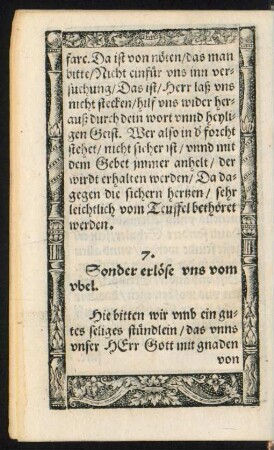 fare. Da ist von nöten/ das man
bitte/ Nicht einfür vns inn ver-
suchung/ Das ist/ Herr laß vns
nicht stecken/ hilf vns wider her-
auß durch dein wort vnnd heyli-
gen Geist. Wer also in d' forcht
stehet/ nicht sicher ist/ vnnd mit
dem Gebet jmmer anhelt/ der
wirdt erhalten werden/ Da da-
gegen die sichern hertzen/ sehr
leichtlich vom Teuffel bethöret
werden.
7.
Sonder erlöse vns vom
vbel.
Hie bitten wir vmb ein gu-
tes seliges stündlein/ das vnns
vnser HErr Gott mit gnaden
von